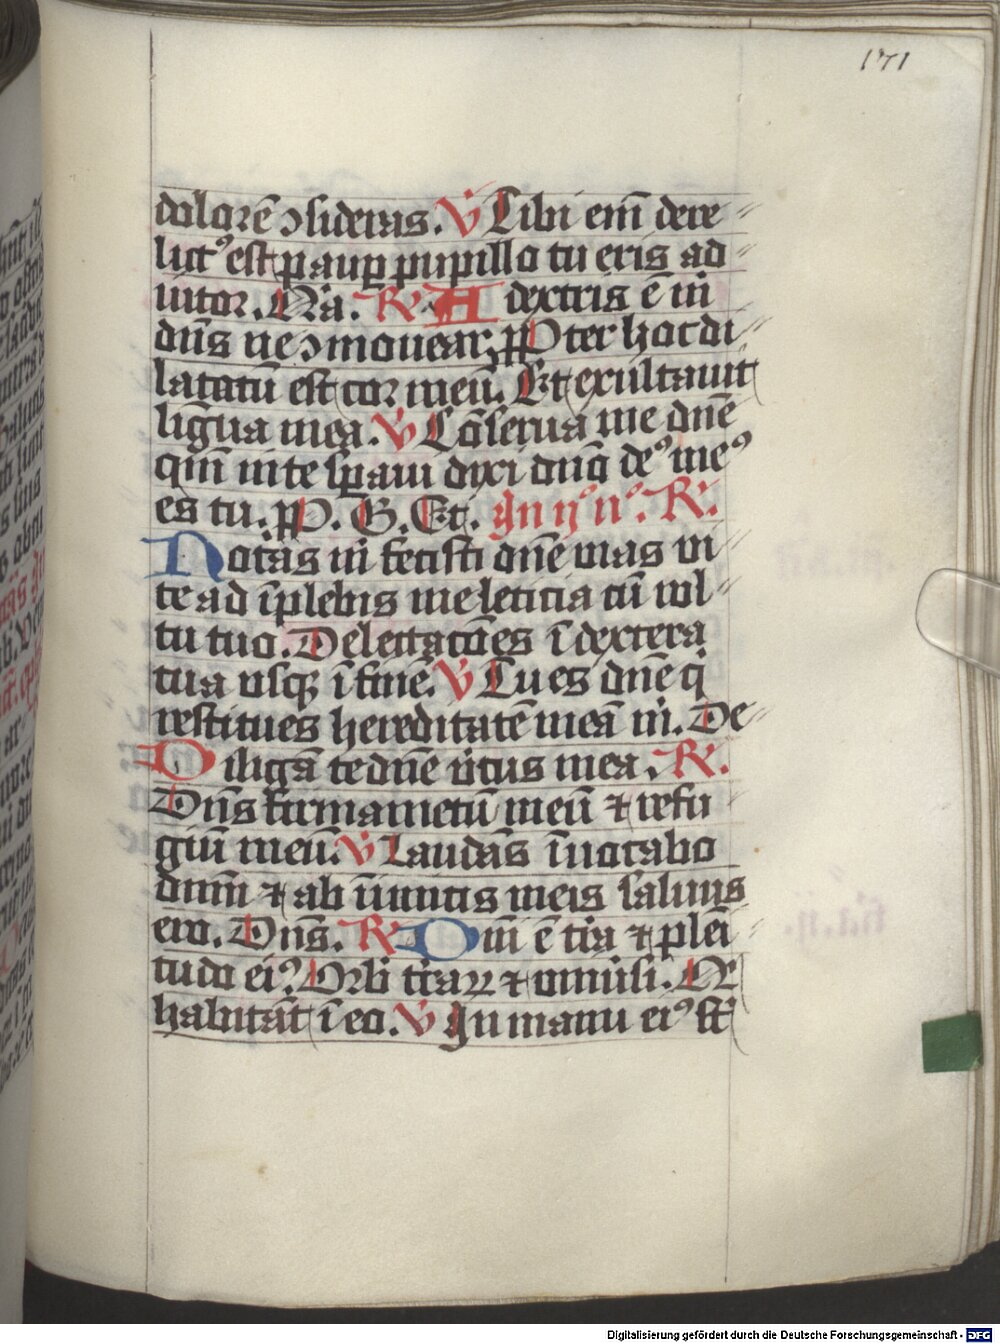 171
dolorē ↄsideras. V̇ Tibi em̄ dere
lict⁹ est paup̲ pupillo tu eris ad
iutor. Na. R. A dextris ē m̄
dn̄s ne ↄmouear. PPter hoc di
latatū est cor meū. Et exultauit
lign̄ua mea. V̇ Cōserua me dn̄e
qm̄ in te sp̲aui dixi dn̄o de⁹ me⁹
es tu. PP. G. Et. In ijᵒ nᵒ. R.
Notas m̄ fecisti dn̄e vias vi
te ad īplebis me leticia cū vul
tu tuo. Delectacōes ī dextera
tua vsqꝫ ī finē. V̇ Tu es dn̄e q̇
restitues hereditatē meā m̄. De
Diligā te dn̄e v̄tus mea. R.
Dn̄s firmamētū meū ⁊ refu
giū meū. V̇ Laudās īuocabo
dnm̄ ⁊ ab īimicis meis saluus
ero. Dn̄s. R. Dm̄ ē t̄ra ⁊ plēi
tudo ei⁹. Orb̄ t̄raꝝ ⁊ vniūsi. Q
habitāt ī eo. V̇ In manu ei⁹ st̄
Digitalisierung gefördert durch die Deutsche Forschungsgemeinschaft - DFG